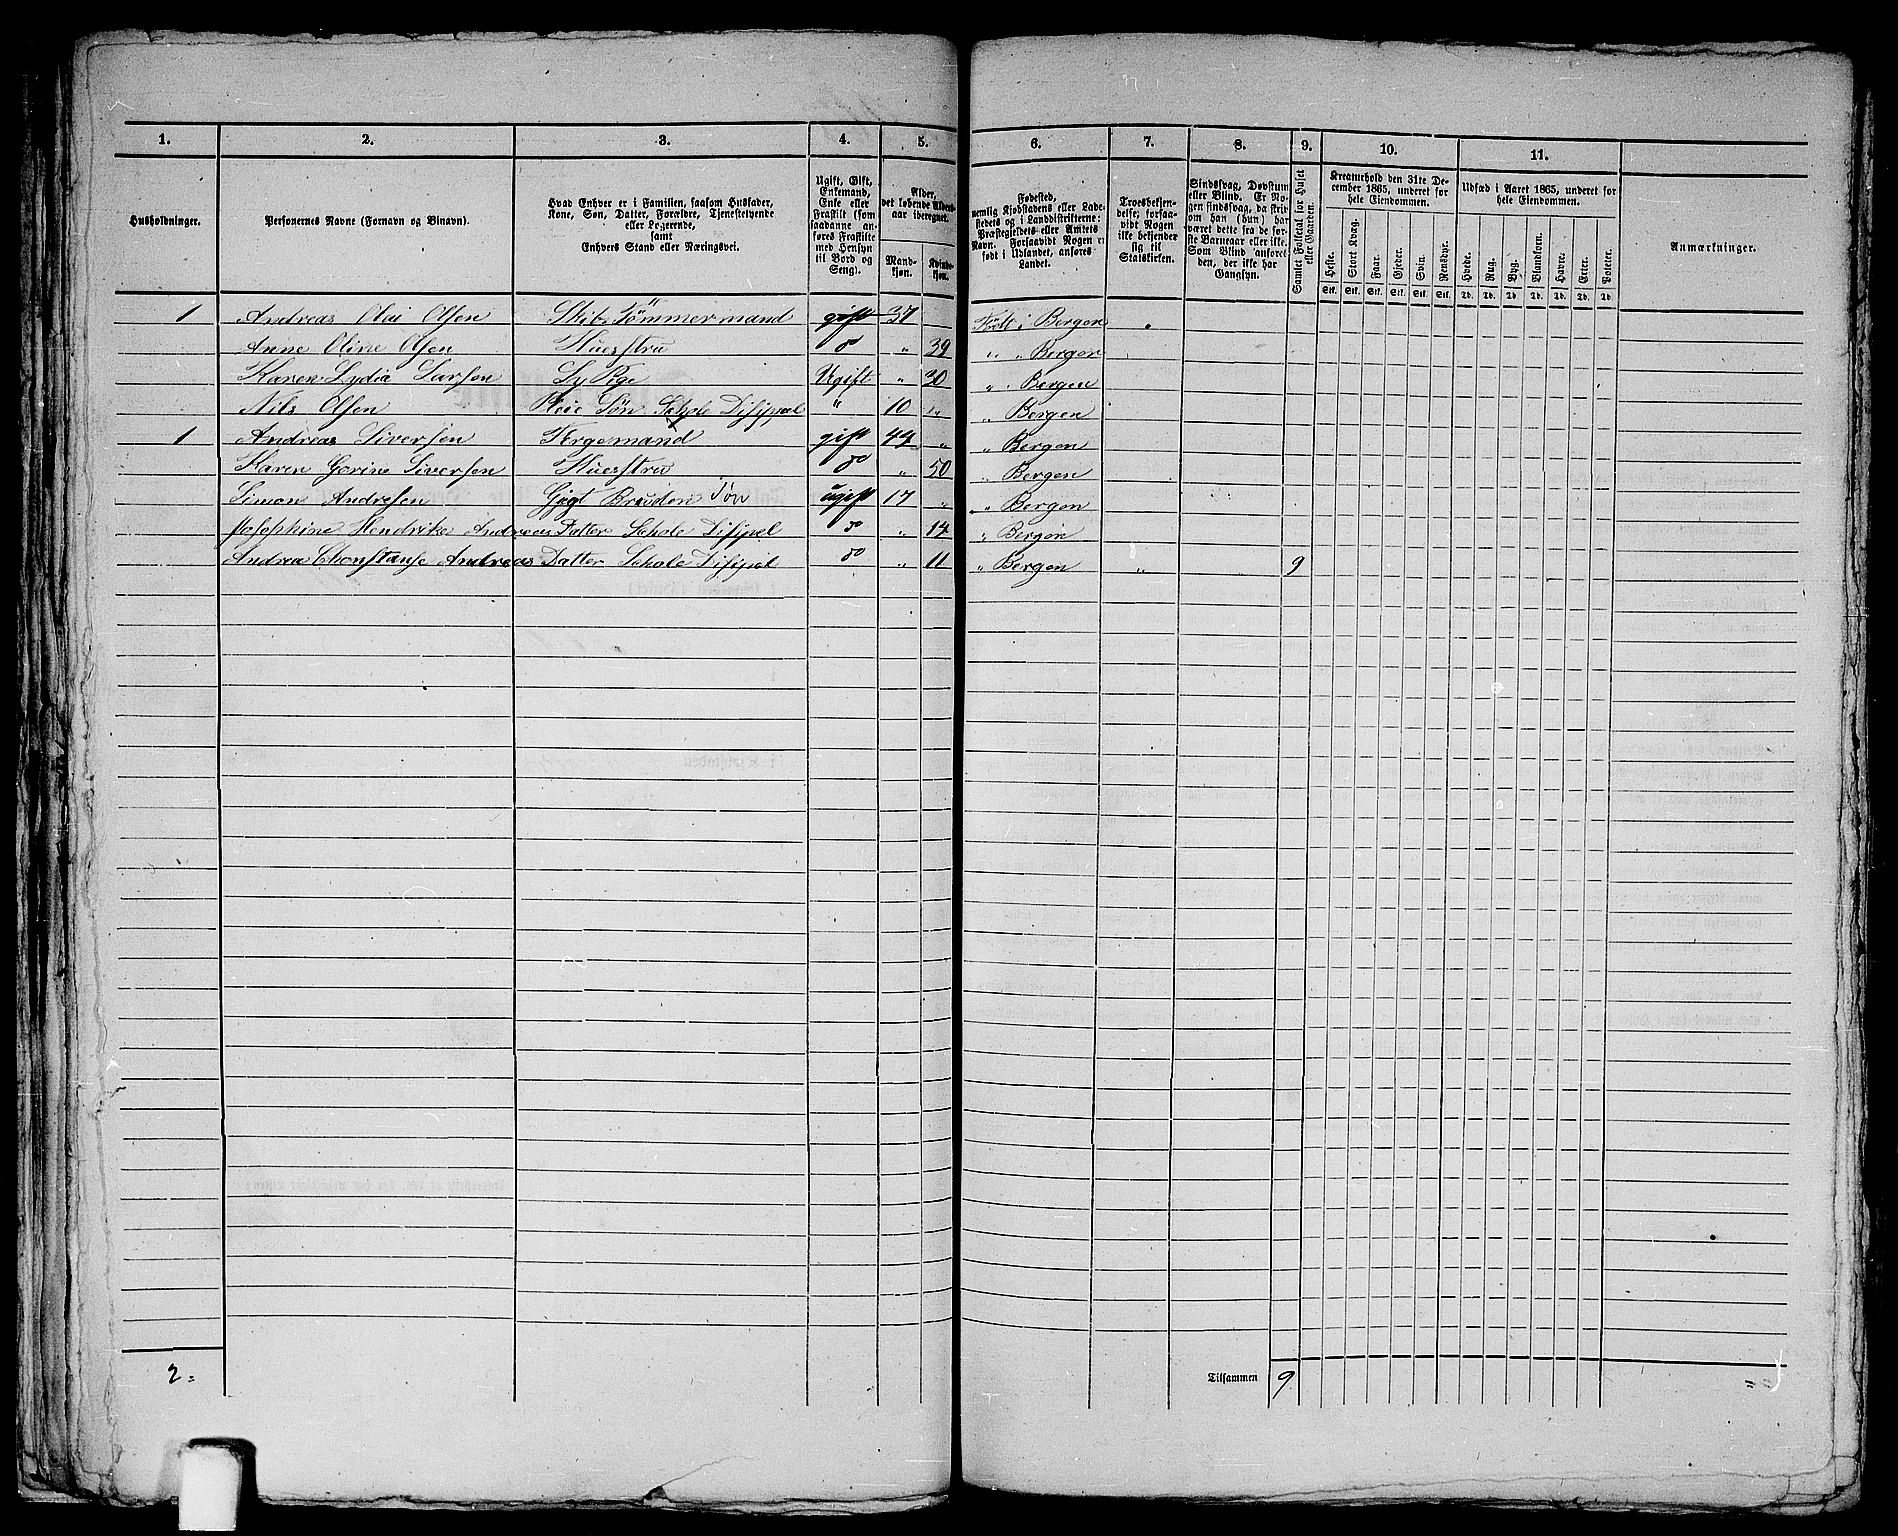 1. 2. 3. 4. 5. 6. 7. 8. 9. 10. 11.
Husholdninger.
Personernes Navne (Fornavn og Binavn).
Hvad Enhver er i Familien, saasom Husfader,
Kone, Søn, Datter, Forældre, Tjenestetyende
eller Logerende,
samt
Enhvers Stand eller Næringsvei.
Ugift, Gift,
Enkemand,
Enke eller
Fraskilt (som
saadanne an-
føres Fraskilte
med Hensyn
til Bord og
Seng).
Alder,
det løbende Alders-
aar iberegnet.
Mand-
kjøn.
Kvinde-
kjøn.
Fødested,
nemlig Kjøbstadens eller Lade-
stedets og i Landdistrikterne:
Præstegjeldets eller Amtets
Navn. Forsaavidt Nogen er
født i Udlandet, anføres
Landet.
Troesbekjen-
delse, forsaa-
vidt Nogen
ikke bekjender
sig til
Statskirken.
Sindssvag, Døvstum
eller Blind. Er No-
gen sindssvag, da skriv
om han (hun) har
været dette fra de før-
ste Barneaar eller ikke.
Som Blind anføres
den, der ikke har
Gangsyn.
Samlet Folketal for Huset
eller Gaarden.
Kreaturhold den 31te De-
cember 1865, underet for
hele Eiendommen.
Heste. Stort Kvæg. Faar. Gjeder. Svin. Rensdyr.
Stk. Stk. Stk. Stk. Stk. Stk.
Udsæd i Aaret 1865, underet for
hele Eiendommen.
Hvede. Rug. Byg. Blandkorn. Havre. Erter. Poteter.
Td. Td. Td. Td. Td. Td. Td.
Anmærkninger.
1 Andreas Olai Olsen Skibs Tømmermand gift 37 Født i Bergen
Anne Olive Olsen Huestru do " 39 " " Bergen
Karen Lydia Larsen Sy Pige Ugift " 30 " " Bergen
Nils Olsen Pleie Søn Skole Disipel " 10 " " Bergen
1 Andreas Siversen Færgemand gift 44 " " Bergen
Karen Gorine Siversen Huestru do " 50 " Bergen
Simon Andresen Søn ugift 17 " " Bergen
Josephine Hendrike Andreas Datter Skole Disipel do " 14 " Bergen
Andrea Chonstanse Andreas Datter Skole Disipel do " 11 " Bergen " 9
2 =
Tilsammen 9 "